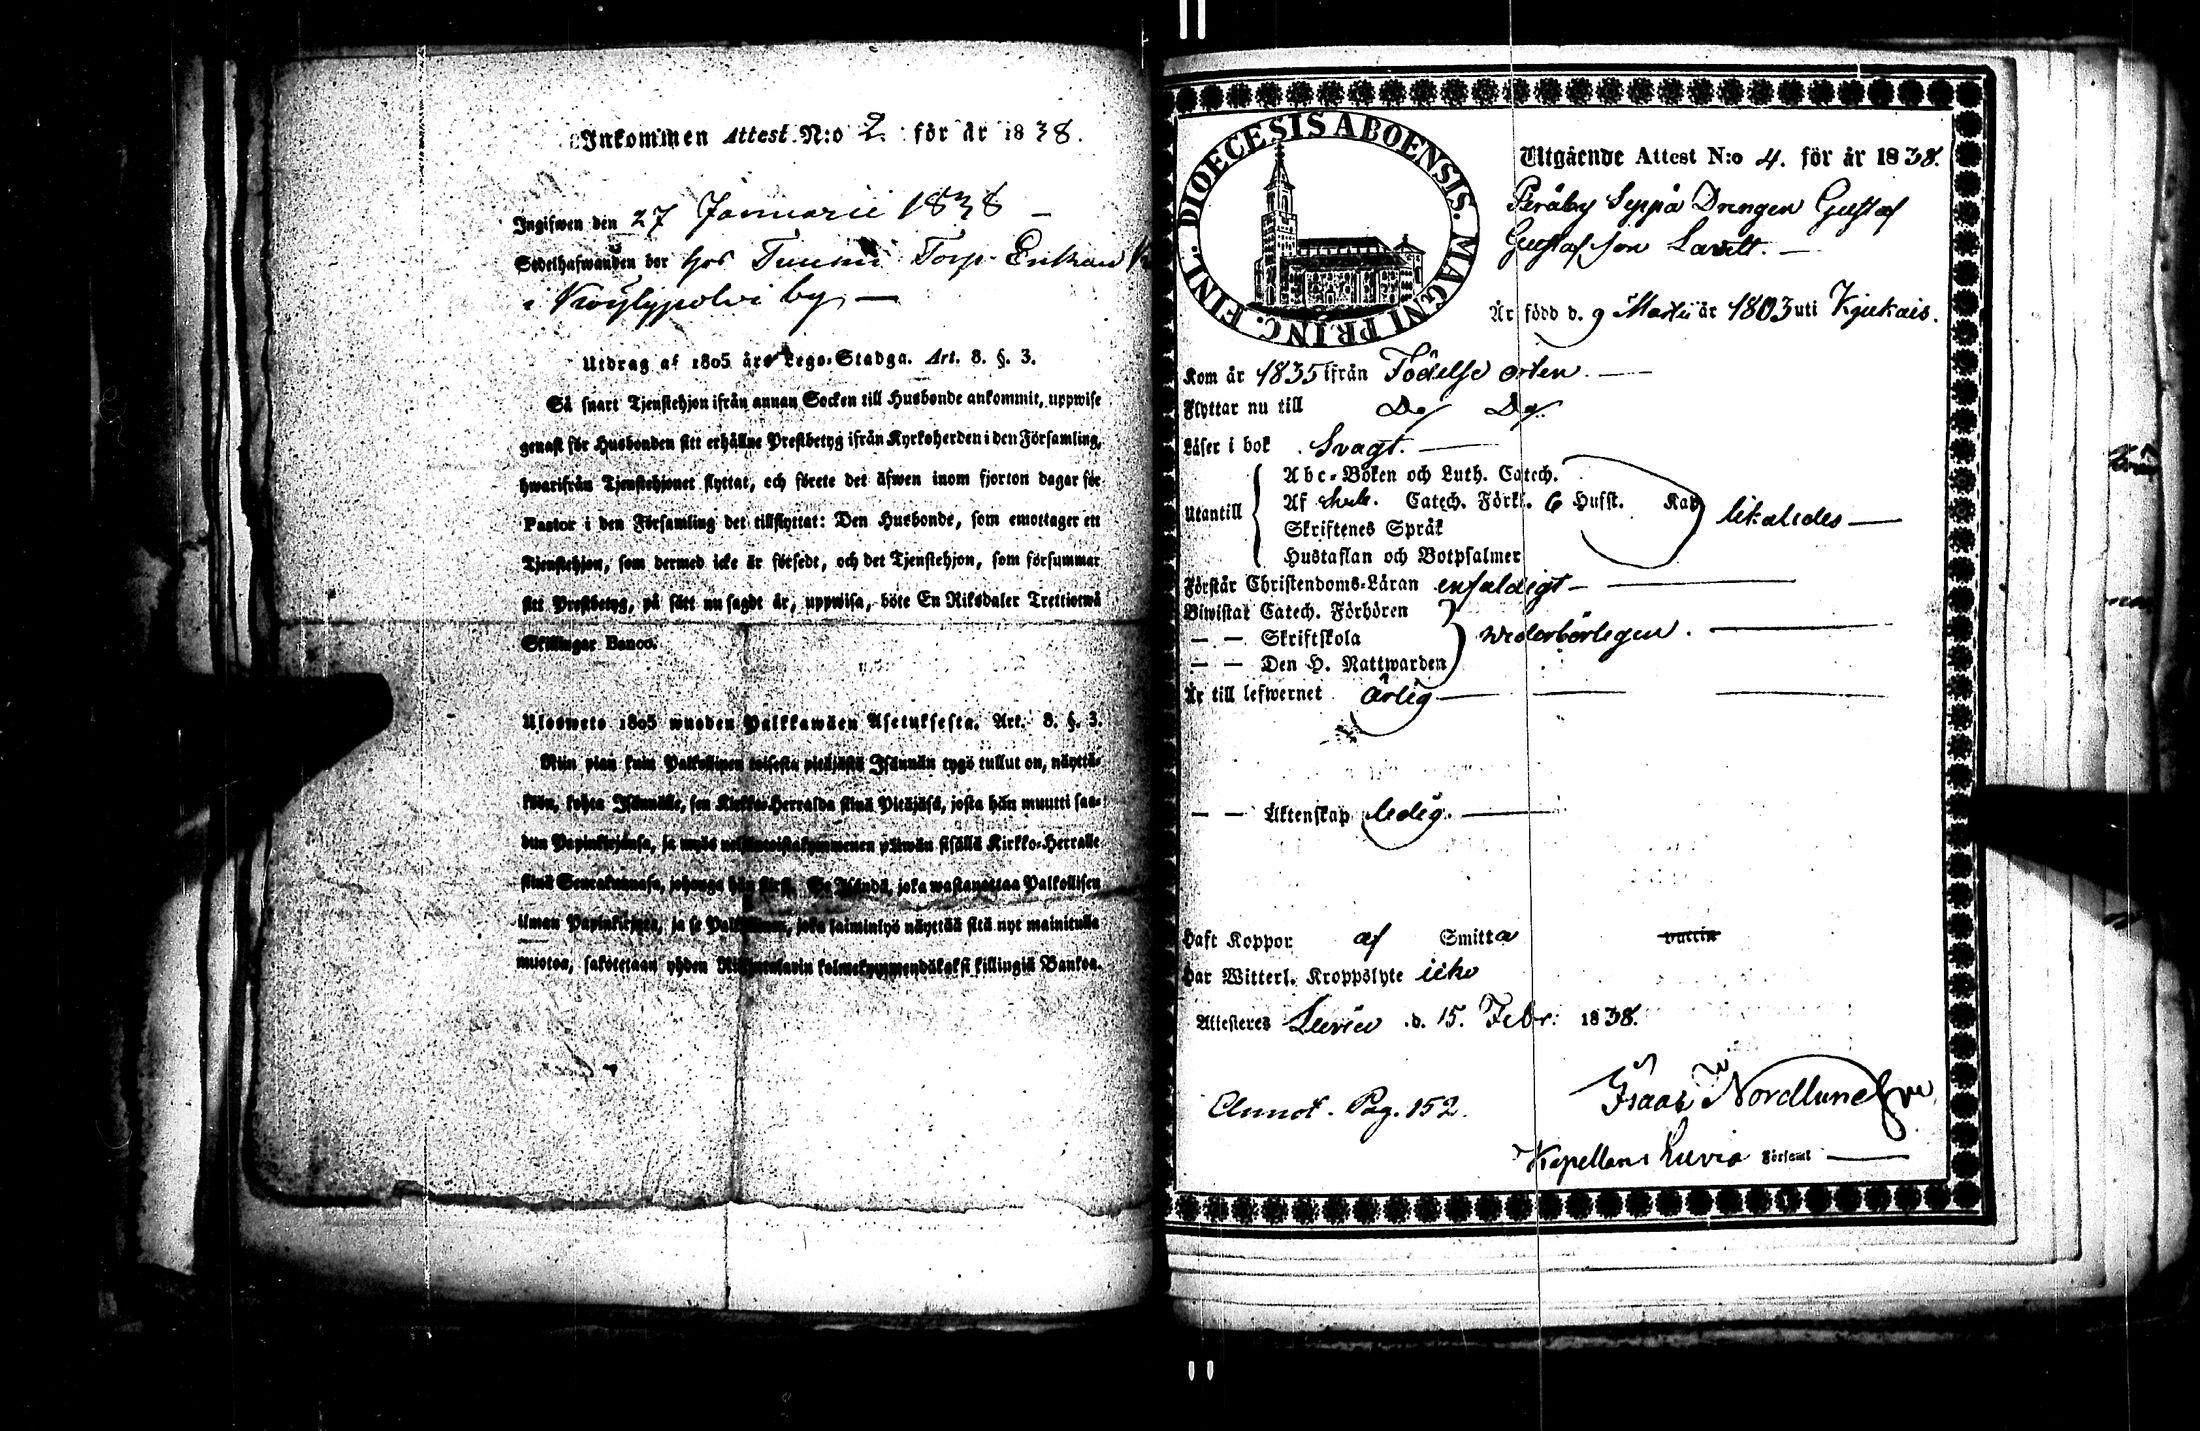 Inkommen Attest N:o 2 för år 1838.
Ingifwen den 27 Januarii 1838 —
Sedelhafwanden bor hos Tuumi Torp
i Köylypolvi by —
Utdrag af 1805 års Lego-Stadga. Art. 8. §. 3.
Så snart Tjenstehjon ifrån annan Socken till Husbonde ankommit, uppwise
genast för Husbonden sitt erhållne Prestbetyg ifrån Kyrkoherden i den Församling,
hwarifrån Tjenstehjonet flyttat, och förete det äfwen inom fjorton dagar för
Pastor i den Församling det tillflyttat: Den Husbonde, som emottager ett
Tjenstehjon, som dermed icke är försedt, och det Tjenstehjon, som försummar
sitt Prestbetyg, på sätt nu sagdt är, uppwisa, böte En Riksdaler Trettiotwå
Skillingar Banco.
Ulosweto 1805 wuoden Palkkawäen Asetuksesta. Art. 8. §. 3.
Niin pian kuin Palkollinen toisesta pitäjästä Isännän tygö tullut on, näyttä-
köön, kohta Isännälle, sen Kirkko-Herralda siinä Pitäjäsä, josta hän muutti saa-
dun Papinkirjansa, ja myös neljäntoistakymmenen päiwän sisällä Kirkko-Herralle
siinä Seurakunnasa, johonga hän siirsi. Se Isändä, joka wastanottaa Palkollisen
ilman Papinkirjata, ja se Palkollinen, joka laiminlyö näyttää sitä nyt mainitulla
muotoa, sakotetaan yhden Riksdalarin kolmekymmendäkaksi killingiä Bankoa.
FINL. DIOECESIS ABOENSIS. MAGNI PRINC.
Utgående Attest N:o 4. för år 1838.
Peråby Seppä Drengen Gustaf
Gustafsson Lavult. —
Är född d. 9 Martii år 1803 uti Kjukais.
Kom år 1835 ifrån Födelse orten. —
Flyttar nu till Do Do.
Läser i bok Svagt. —
Utantill
Abc-Boken och Luth. Catech.
Af Catech. Förkl. 6 Hufst. Kap
likaledes —
Skriftenes Språk
Hustaflan och Botpsalmer
Förstår Christendoms-Läran enfaldigt —
Biwistat Catech. Förhören
— — Skriftskola wederbörligen. —
— — Den H. Nattwarden
Är till lefwernet ärlig —
— — Äktenskap ledig. —
Haft Koppor af Smitta vaccin
Har Witterl. Kroppslyte icke
Attesteres Luvia d. 15. Febr. 1838.
Isaac Nordlund
Annot. Pag. 152.
Kapellan i Luvia Församl —